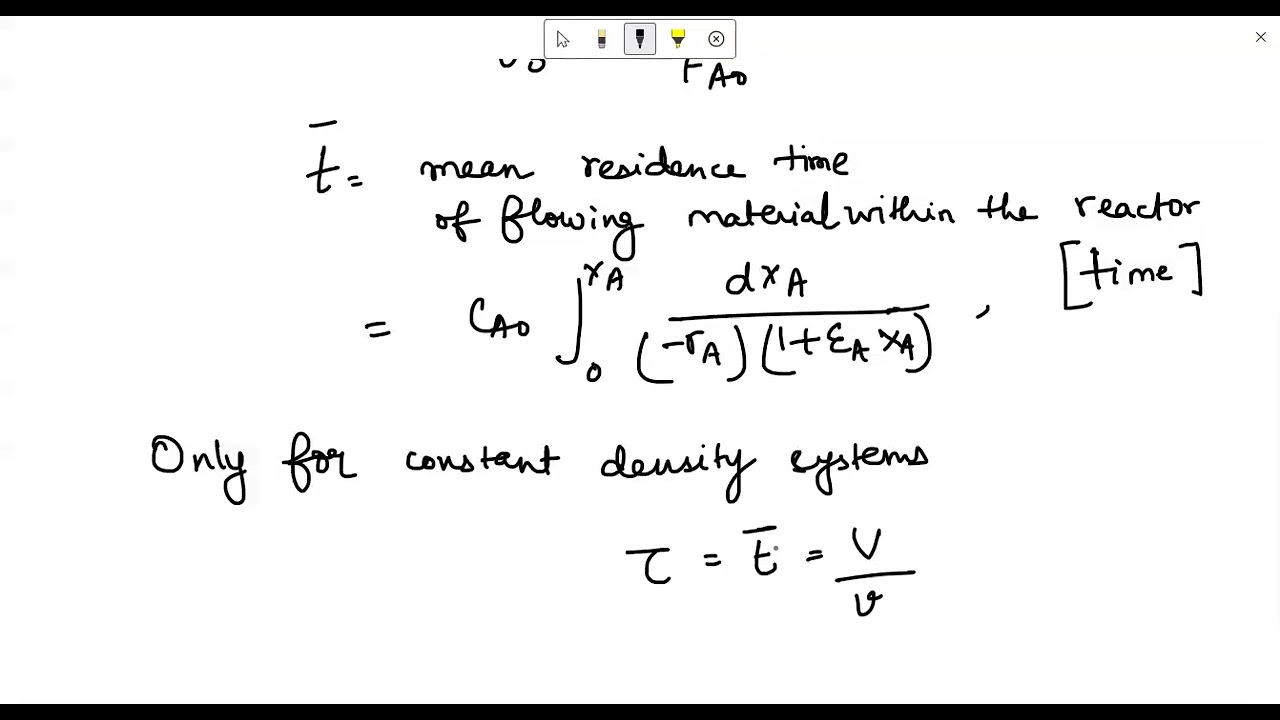 v0 FA0
t̄ = mean residence time
of flowing material within the reactor
= CA0 ∫0^XA dXA / (-rA)(1+εA XA) , [time]
Only for constant density systems
τ = t̄ = V/v